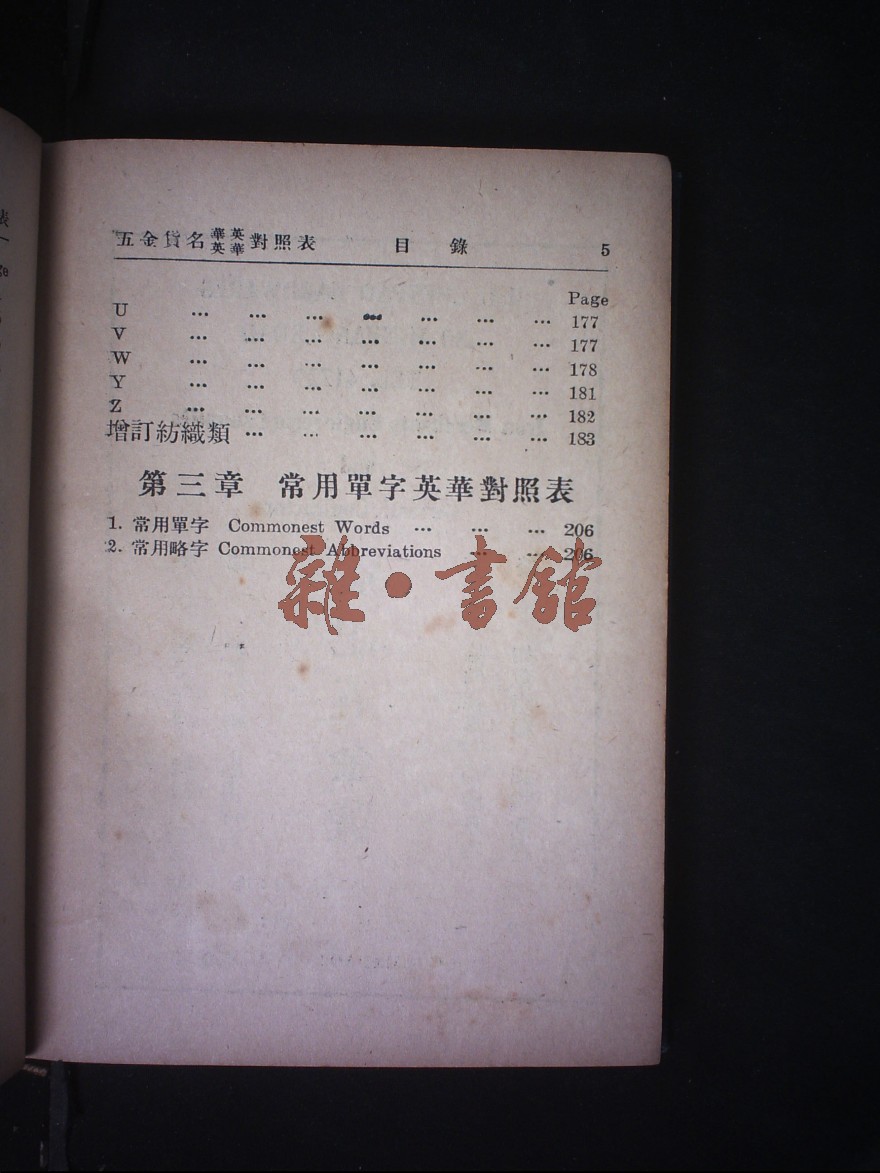 五金貨名華英英華對照表 目錄 5
Page
U ... ... ... ... ... ... ... 177
V ... ... ... ... ... ... ... 177
W ... ... ... ... ... ... ... 178
Y ... ... ... ... ... ... ... 181
Z ... ... ... ... ... ... ... 182
增訂紡織類 ... ... ... ... ... ... 183
第三章 常用單字英華對照表
1. 常用單字 Commonest Words ... ... ... 206
2. 常用略字 Commonest Abbreviations ... ... 206
雜·書館